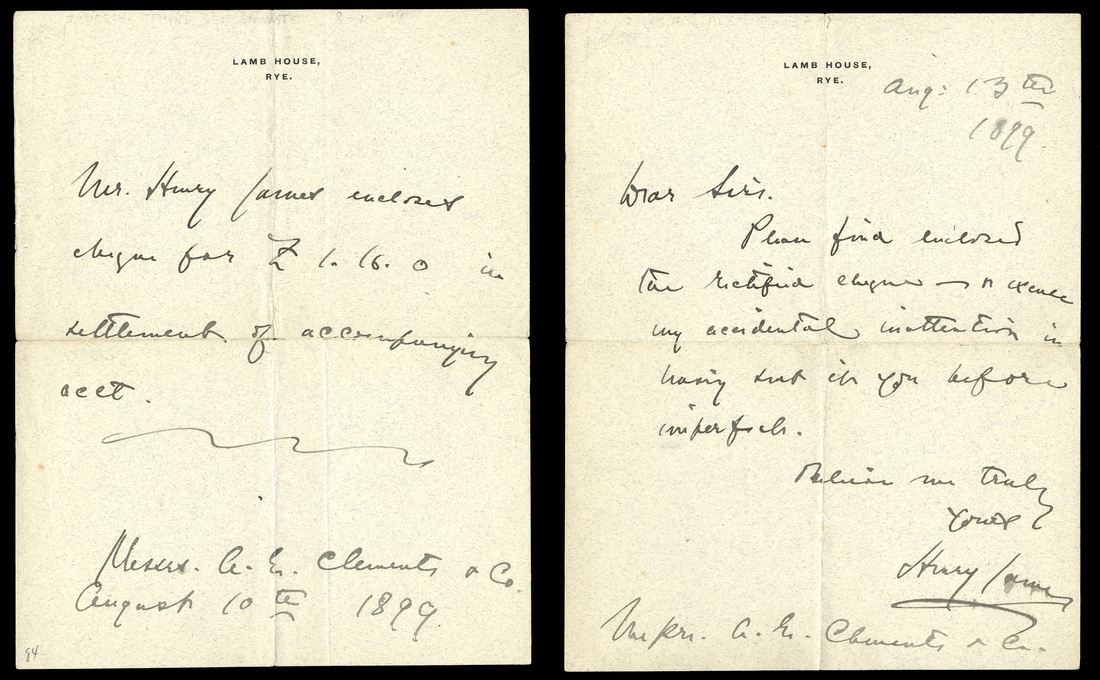 LAMB HOUSE,
RYE.
Mr. Henry James encloses
cheque for £ 1. 16. 0 in
settlement of accompanying
acct.
Messrs. A. E. Clements & Co.
August 10th 1899.
94
LAMB HOUSE,
RYE.
Aug: 13th
1899.
Dear Sirs.
Please find enclosed
the rectified cheque — & excuse
my accidental inattention in
having sent it you before
imperfect.
Believe me truly
yours
Henry James
Messrs. A. E. Clements & Co.